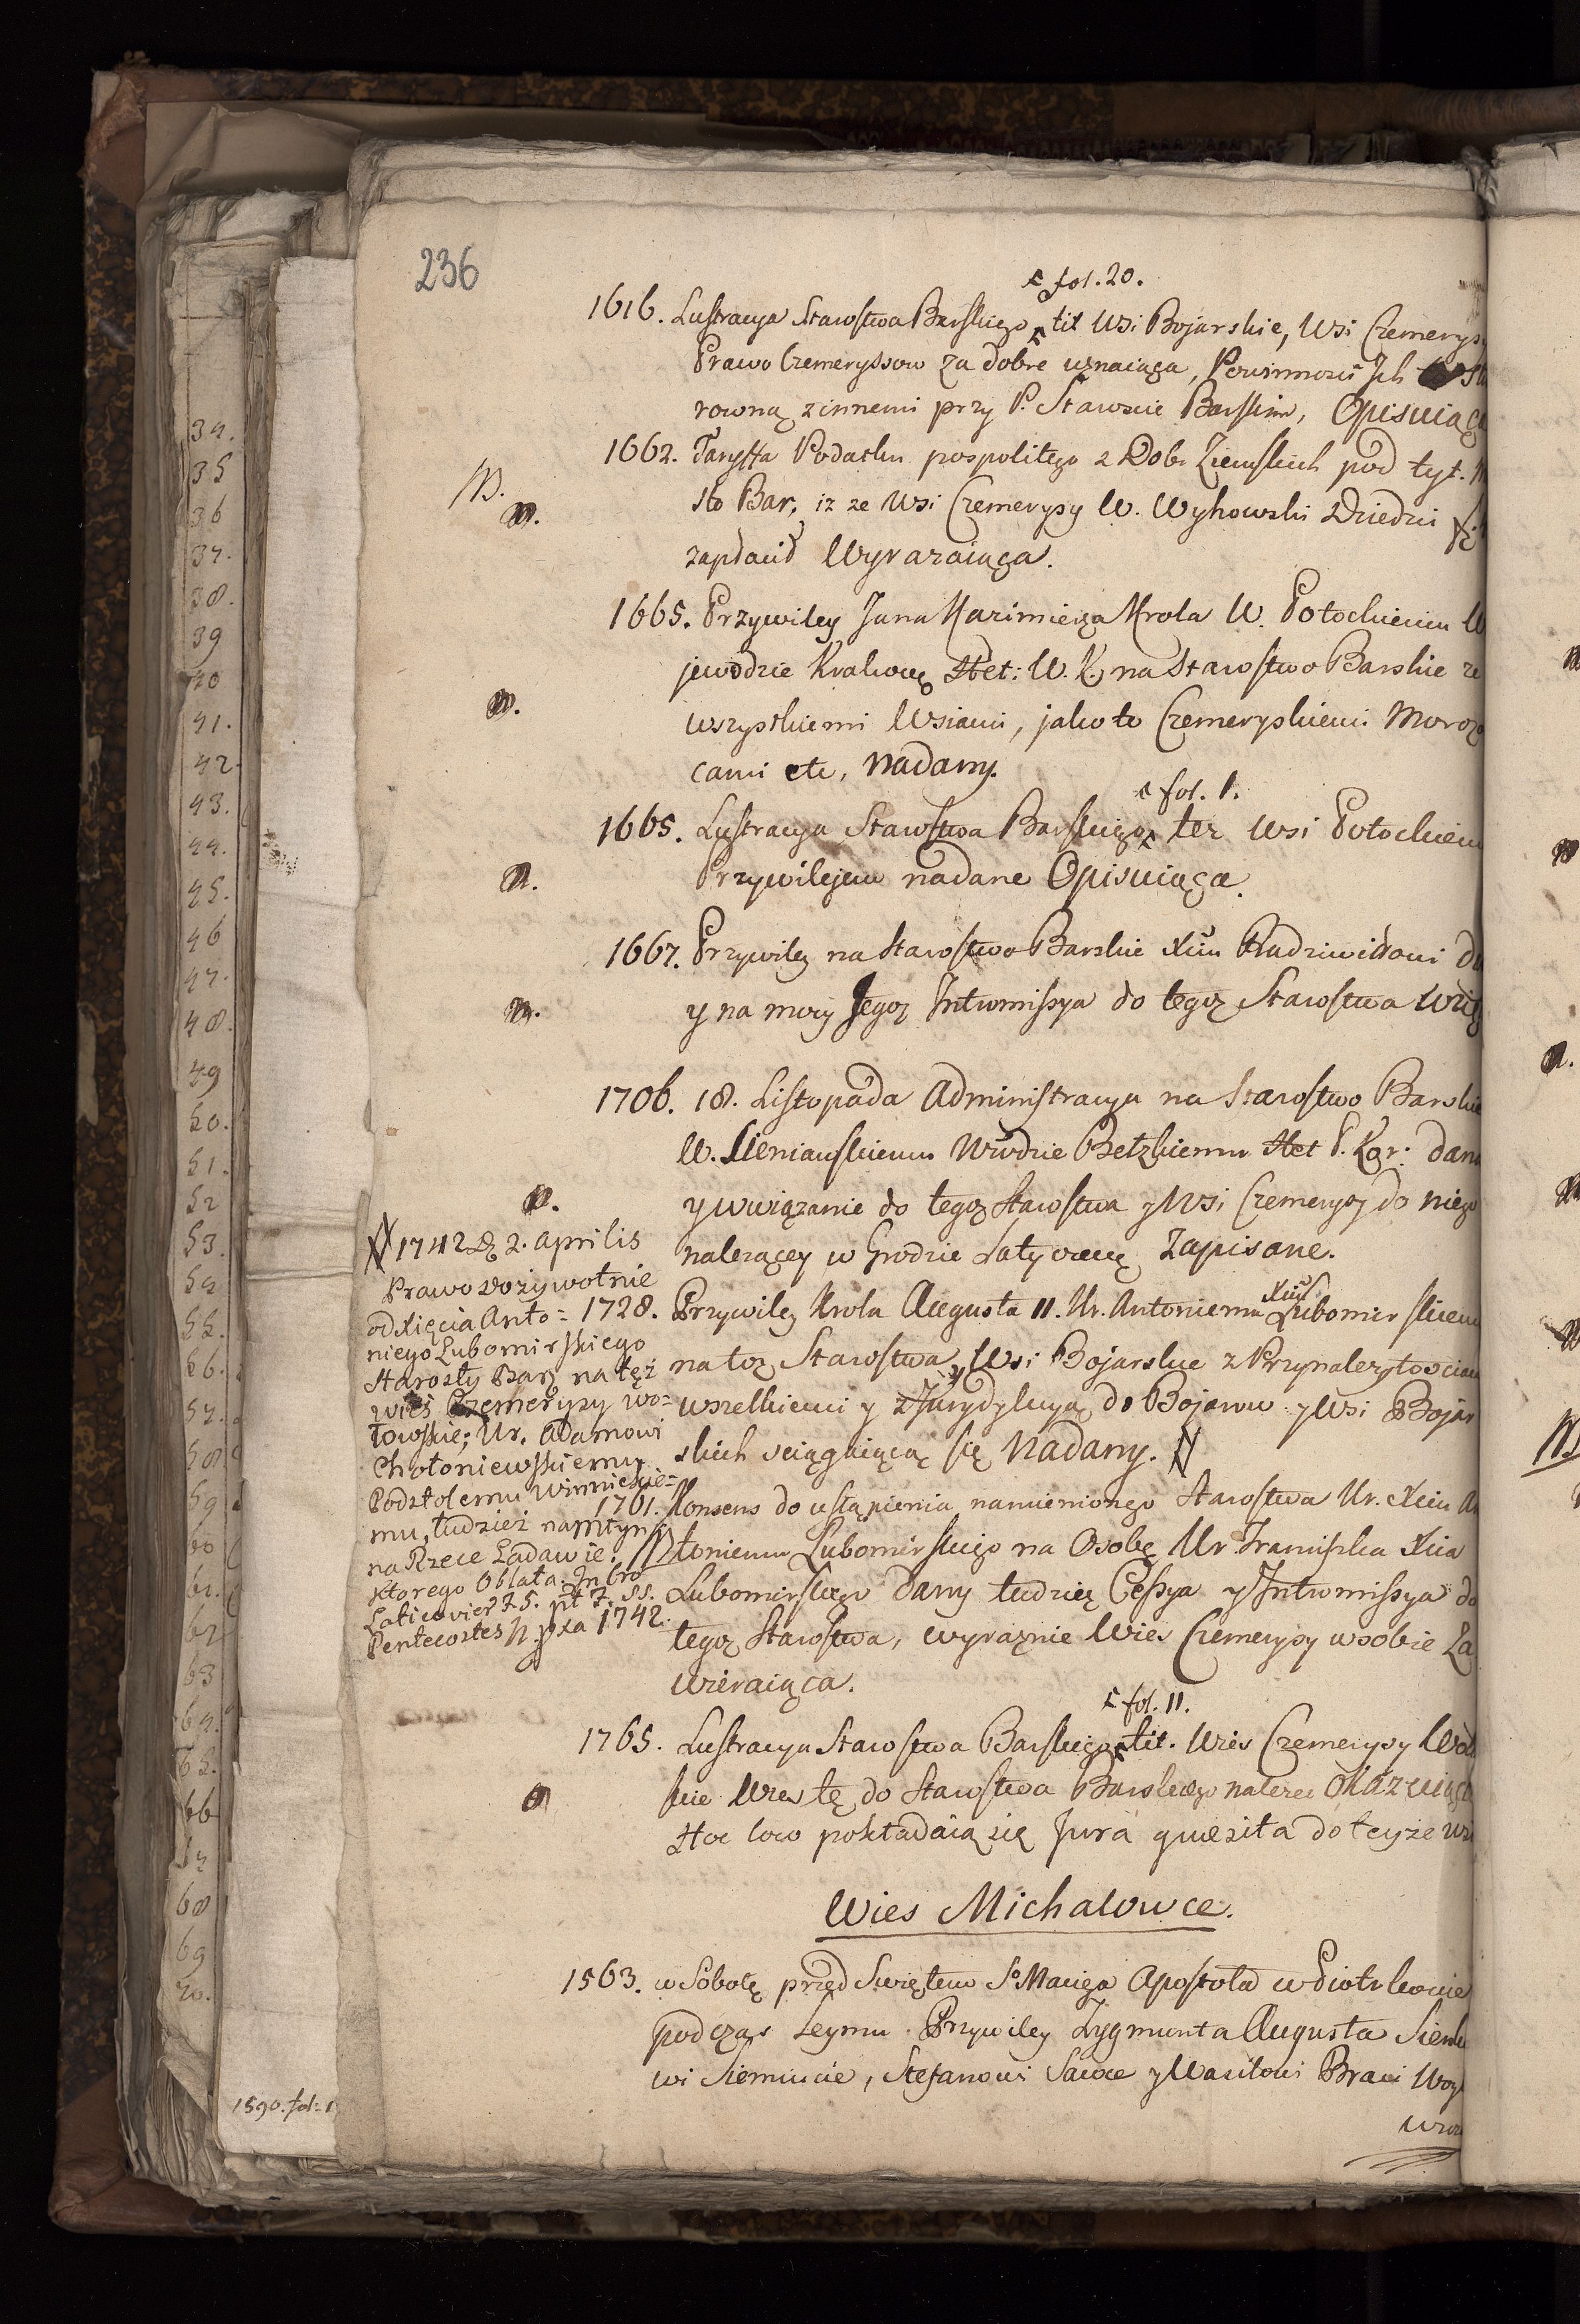 236
fol. 20.
1616. Lustracya Starostwa Barskiego tit Wsi Bojarskie, Wsi Czemerys
Prawo Czemeryssow za dobre uznaiąca, Powinnosci Jch
rowną z innemi przy P. Staroscie Barskim, Opisuiąca
1662. Taryffa Podatku pospolitego z Dobr Ziemskich pod tyt.
sto Bar, iz ze Wsi Czemerysy W. Wyhowski Dziedzi
zapłacił Wyrazaiąca.
1665. Przywiley Jana Kazimierza Krola W. Potockiemu W
jewodzie Krakowę Het: W. K. na Starostwo Barskie ze
wszystkiemi Wsiami, jako to Czemeryskiemi Moroz
cami etc, Nadany.
fol. 1.
1665. Lustracya Starostwa Barskiego tez Wsi Potockiem
Przywilejem nadane Opisuiąca.
1667. Przywiley na Starostwo Barskie Xciu Radziwiłłowi da
y na mocy Jegoz Intromissya do tegoz Starostwa
1706. 18. Listopada Administracya na Starostwo Barskie
W. Sieniawskiemu Wwdzie Bełzkiemu Het P. Kor: dana
y wwiązanie do tegoz Starostwa y Wsi Czemerysy do niego
nalezącey w Grodzie Latyczowę Zapisane.
1728. Przywiley Krola Augusta II. Ur. Antoniemu Xciu Lubomirskiemu
na toz Starostwa, y Wsi Bojarskie z Przynalezytosciami
wszelkiemi y z Jurydykcyą do Bojarow y Wsi Bojar
skich sciągaiącą się Nadany.
1742 D 2. Aprilis
Prawo dozywotnie
od Xięcia Anto=
niego Lubomirskiego
Starosty Bar: na tęż
wieś Czemerysy Wo=
łowskie, Ur. Adamowi
Chołoniewskiemu
Podstolemu Winnickie=
mu, tudzież na Młyn
na Rzece Ładawie.
ktorego Oblata. In Cro
Laticovien F. 5. pt F. SS.
Pentecostes pxa 1742.
1761. Konsens do ustąpienia namienionego Starostwa Ur. Xciu An
toniemu Lubomirskiego na Osobę Ur Franciszka Xcia
Lubomirskiego Dany tudziez Cessya y Intromissya do
tegoz Starostwa, wyraznie Wies Czemerysy w sobie Za
wieraiąca.
fol. 11.
1765. Lustracya Starostwa Barskiego tit. Wies Czemerysy Woło
skie Wies tę do Starostwa Barskiego nalezec Okazuiąca
Hoc loco pokładaią się Jura quæsita do teyże wsi
Wies Michalowce.
1563. w Sobotę przed Swiętem So Macieja Apostoła w Piotrkowie
podczas Seymu Przywiley Zygmunta Augusta Sienko
wi Siemiucie, Stefanowi Sawce y Wasilowi Braci
1590. fol: 1
34.
35
36
37.
38.
39
40
41.
42.
43.
44.
45.
46
47.
48.
49
50.
51.
52
53.
54
55.
56.
57.
58
59
60
61.
62
63
64.
65.
66
67
68
69
70.